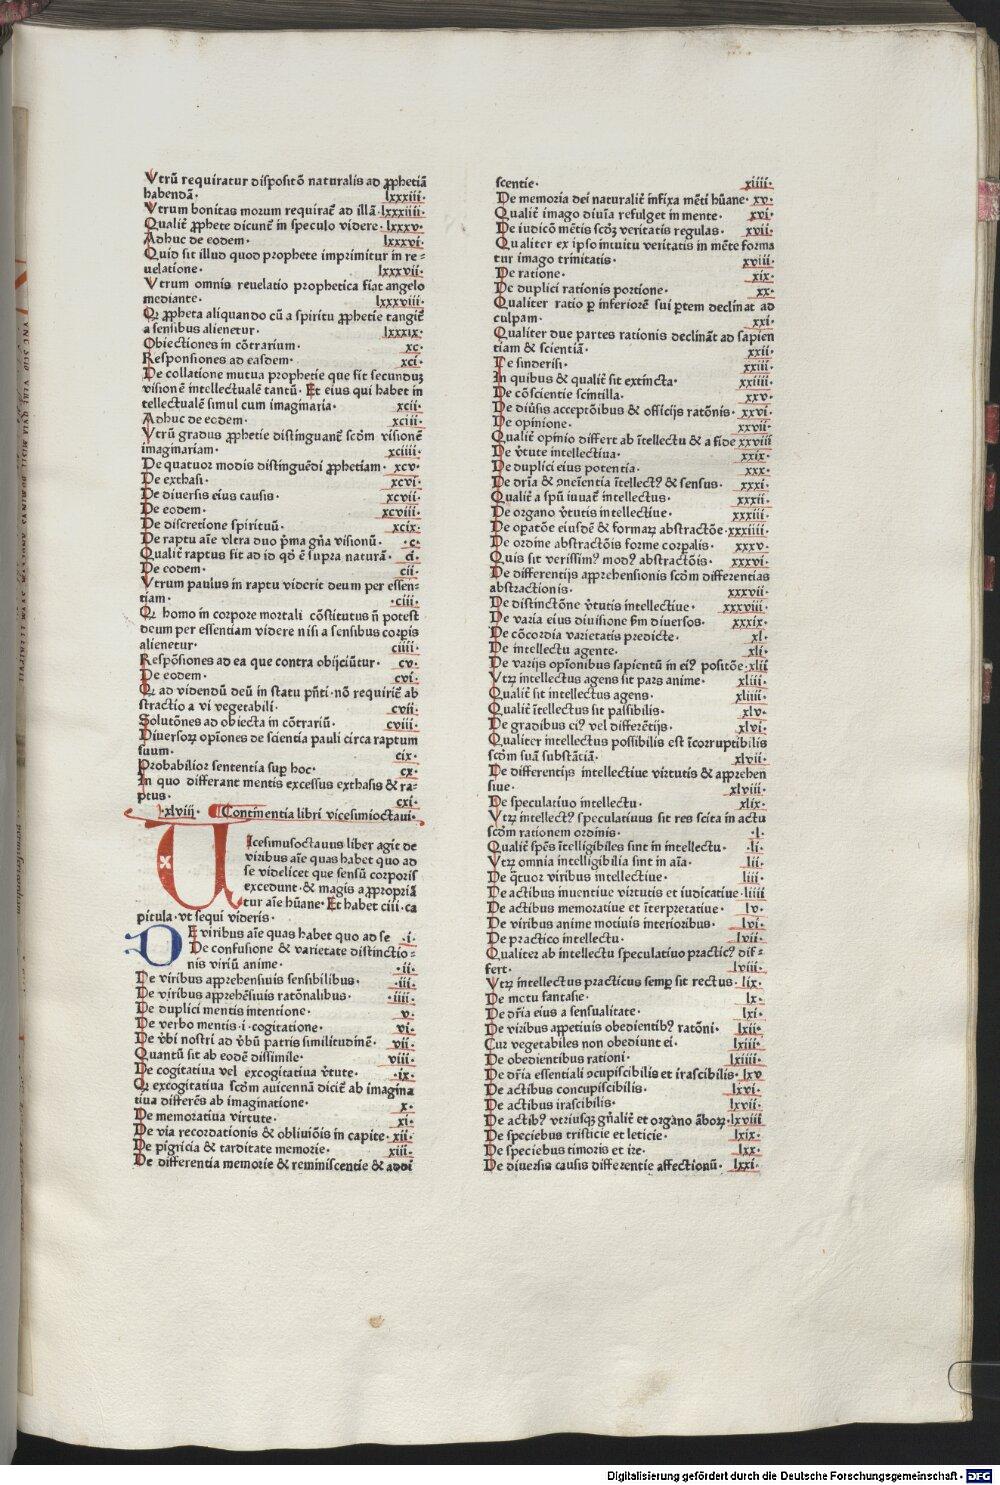 Vtrū requiratur dispositō naturalis ad ꝓphetiā
habendā· lxxxiii·
Vtrum bonitas morum requirat᷑ ad illā·lxxxiiii·
Qualit᷑ ꝓphete dicunt᷑ in speculo videre·lxxxv·
Adhuc de eodem· lxxxvi·
Quid sit illud quod prophete imprimitur in re⸗
uelatione· lxxxvii·
Vtrum omnis reuelatio prophetica fiat angelo
mediante· lxxxviii·
Qꝛ ꝓpheta aliquando cū a spiritu ꝓphetie tangit᷑
a sensibus alienetur· lxxxix·
Obiectiones in cōtrarium· xc·
Responsiones ad easdem· xci·
De collatione mutua prophetie que fit secunduꝫ
visionē intellectualē tantū· Et eius qui habet in
tellectualē simul cum imaginaria· xcii·
Adhuc de eodem· xciii·
Vtrū gradus ꝓphetie distinguant᷑ scd̄m visionē
imaginariam· xciiii·
De quatuoꝛ modis distinguēdi ꝓphetiam· xcv·
De exthasi· xcvi·
De diuersis eius causis· xcvii·
De eodem· xcviii·
De discretione spirituū· xcix·
De raptu aīe vltra duo p̄ma gn̄a visionū· ·c·
Qualit᷑ raptus sit ad id qd̄ ē supra naturā· ci·
De eodem· cii·
Vtrum paulus in raptu viderit deum per essen⸗
tiam· ·ciii·
Qꝛ homo in corpore mortali cōstitutus n̄ potest
deum per essentiam videre nisi a sensibus corpis
alienetur· ciiii·
Respōsiones ad ea que contra obijciūtur· cv·
De eodem· cvi·
Qꝛ ad videndū deū in statu pn̄ti·nō requirit᷑ ab
stractio a vi vegetabili· cvii·
Solutōnes ad obiecta in cōtrariū· cviii·
Diuersoꝝ opīones de scientia pauli circa raptum
suum· cix·
Probabilior sententia sup̱ hoc· cx·
In quo differant mentis excessus exthasis & ra⸗
ptus· cxi·
·xlviij· Continentia libri vicesimioctaui·
Uicesimusoctauus liber agit de
viribus aīe quas habet quo ad
se videlicet que sensū corporis
excedunt·& magis aꝓpropriā
tur aīe hūane·Et habet ciii·ca
pitula·vt sequi videris·
DE viribus aīe quas habet quo ad se ·i·
De confusione & varietate distinctio⸗
nis viriū anime· ·ii·
De viribus apprehensiuis sensibilibus· ·iii·
De viribus apprehēsiuis ratōnalibus· ·iiii·
De duplici mentis intentione· v·
De verbo mentis·i·cogitatione· vi·
De v̄bi nostri ad v̄bū patris similitudinē· vii·
Quantū sit ab eodē dissimile· viii·
De cogitatiua vel excogitatiua v̄tute· ·ix·
Qꝛ excogitatiua scd̄m auicennā dicit᷑ ab imagina
tiua differēs ab imaginatione· x·
De memoratiua virtute· xi·
De via recordationis & obliuiōis in capite· xii·
De pigricia & tarditate memorie· xiii·
De differentia memorie & reminiscentie & addi
scentie· xiiii·
De memoria dei naturalit᷑ infixa mēti hūane· xv·
Qualit᷑ imago diuīa refulget in mente· xvi·
De iudicō mētis scd̄ꝫ veritatis regulas· xvii·
Qualiter ex ipso intuitu veritatis in mēte forma
tur imago trinitatis· xviii·
De ratione· xix·
De duplici rationis portione· xx·
Qualiter ratio ꝑ inferiorē sui ꝑtem declinat ad
culpam· xxi·
Qualiter due partes rationis declināt ad sapien
tiam & scientiā· xxii·
De sinderisi· xxiii·
In quibus & qualit᷑ sit extincta· xxiiii·
De cōscientie scintilla· xxv·
De diūsis acceptōibus & officijs ratōnis· xxvi·
De opinione· xxvii·
Qualit᷑ opinio differt ab ītellectu & a fide xxviii
De v̄tute intellectiua· xxix·
De duplici eius potentia· xxx·
De dr̄ia & ꝯueīentia ītellectꝰ & sensus· xxxi·
Qualit᷑ a spū iuuat᷑ intellectus· xxxii·
De organo v̄tutis intellectiue· xxxiii·
De opatōe eiusdē & formaꝝ abstractōe·xxxiiii·
De ordine abstractōis forme corp̱alis· xxxv·
Quis sit verissimꝰ modꝰ abstractōis· xxxvi·
De differentijs apprehensionis scd̄m differentias
abstractionis· xxxvii·
De distinctōne v̄tutis intellectiue· xxxviii·
De varia eius diuisione fm̄ diuersos· xxxix·
De cōcordia varietatis predicte· xl·
De intellectu agente· xli·
De varijs opīonibus sapientū in eiꝰ positōe·xlii
Vtꝝ intellectus agens sit pars anime· xliii·
Qualit᷑ sit intellectus agens· xliiii·
Qualit᷑ ītellectus sit passibilis· xlv·
De gradibus eiꝰ vel differētijs· xlvi·
Qualiter intellectus possibilis est īcorruptibilis
scd̄m suā substātiā· xlvii·
De differentijs intellectiue virtutis & apprehen
siue· xlviii·
De speculatiuo intellectu· xlix·
Vtꝝ intellectꝰ speculatiuus sit res scita in actu
scd̄m rationem ordinis· ·l·
Qualit᷑ spēs ītelligibiles sint in intellectu· ·li·
Vtꝝ omnia intelligibilia sint in aīa· lii·
De q̄tuor viribus intellectiue· liii·
De actibus inuentiue virtutis et iudicatiue·liiii
De actibus memoratiue et īterpretatiue· lv·
De viribus anime motiuis interioribus· lvi·
De practico intellectu· lvii·
Qualiteꝛ ab intellectu speculatiuo practicꝰ dif⸗
fert· lviii·
Vtꝝ intellectus practicus semp̱ sit rectus· lix·
De motu fantasie· lx·
De dr̄ia eius a sensualitate· lxi·
De viribus appetiuis obedientibꝰ ratōni· lxii·
Cur vegetabiles non obediunt ei· lxiii·
De obedientibus rationi· lxiiii·
De dr̄ia essentiali ꝯcupiscibilis et irascibilis· lxv
De actibus concupiscibilis· lxvi·
De actibus irascibilis· lxvii·
De actibꝰ vtriusqꝫ gn̄alit᷑ et organo āboꝝ·lxviii
De speciebus tristicie et leticie· lxix·
De speciebus timoris et ire· lxx·
De diuersis causis differentie affectionū· lxxi·
Digitalisierung gefördert durch die Deutsche Forschungsgemeinschaft · DFG